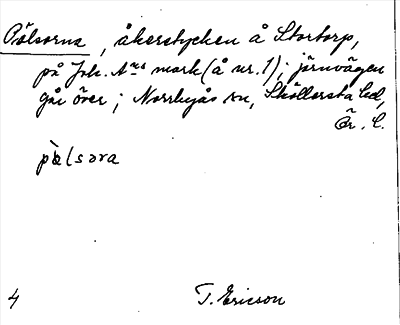 Pålsorna, åkerstycken å Stortorp,
på Joh. A:ns mark (å nr. 1); järnvägen
går över; Norrbyås sn, Sköllersta hd,
Ör. l.
pålsɒra
4 T. Ericson